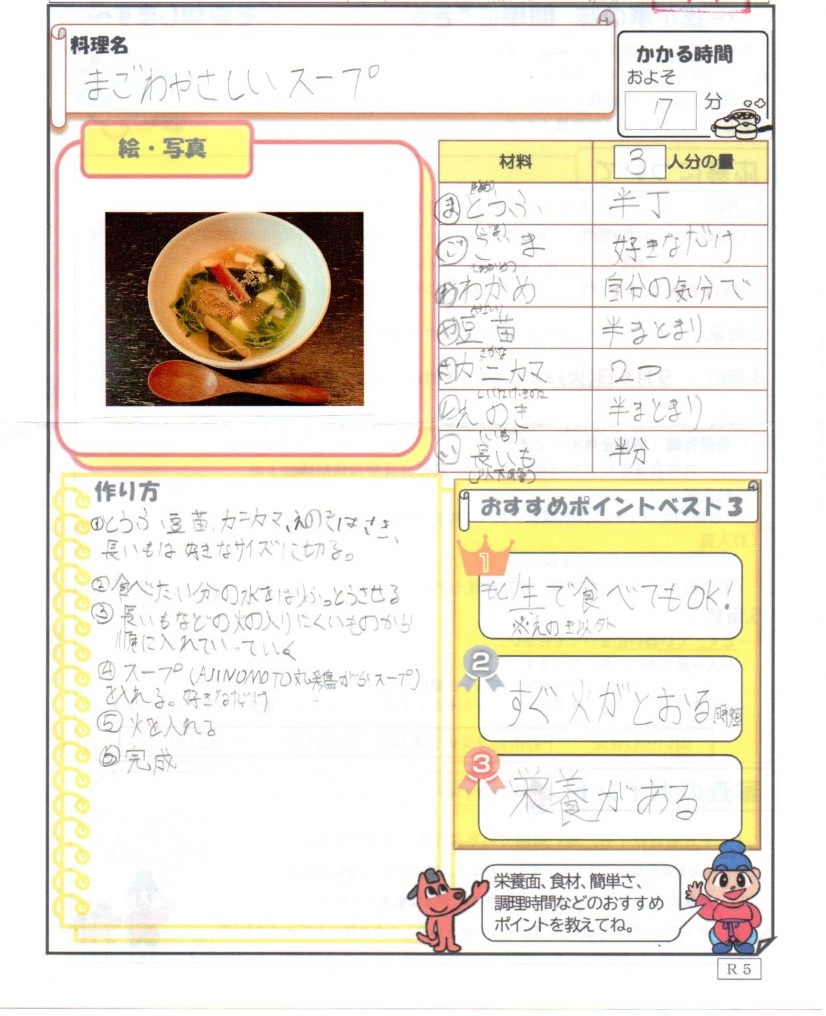 料理名
まごわやさしいスープ
かかる時間
およそ
7 分
絵・写真
材料 3 人分の量
(まめ)
ま とうふ 半丁
(ごま)
ご ごま 好きなだけ
(わかめ)
わ わかめ 自分の気分で
(やさい)
や 豆苗 半まとまり
さかな
さ カニカマ 2つ
し えのき 半まとまり
(いも)
い 長いも 半分
作り方
①とうふ、豆苗、カニカマ、えのきはさき、
長いもは好きなサイズに切る。
②食べたい分の水をはりふっとうさせる
③長いもなどの火の入りにくいものから
順に入れていっていく
④スープ(AJINOMOTO丸鶏がらスープ)
を入れる。好きなだけ
⑤火を入れる
⑥完成
おすすめポイントベスト3
1
生で食べてもOK!
2
すぐ火がとおる 時短
3
栄養がある
栄養面、食材、簡単さ、
調理時間などのおすすめ
ポイントを教えてね。
R5